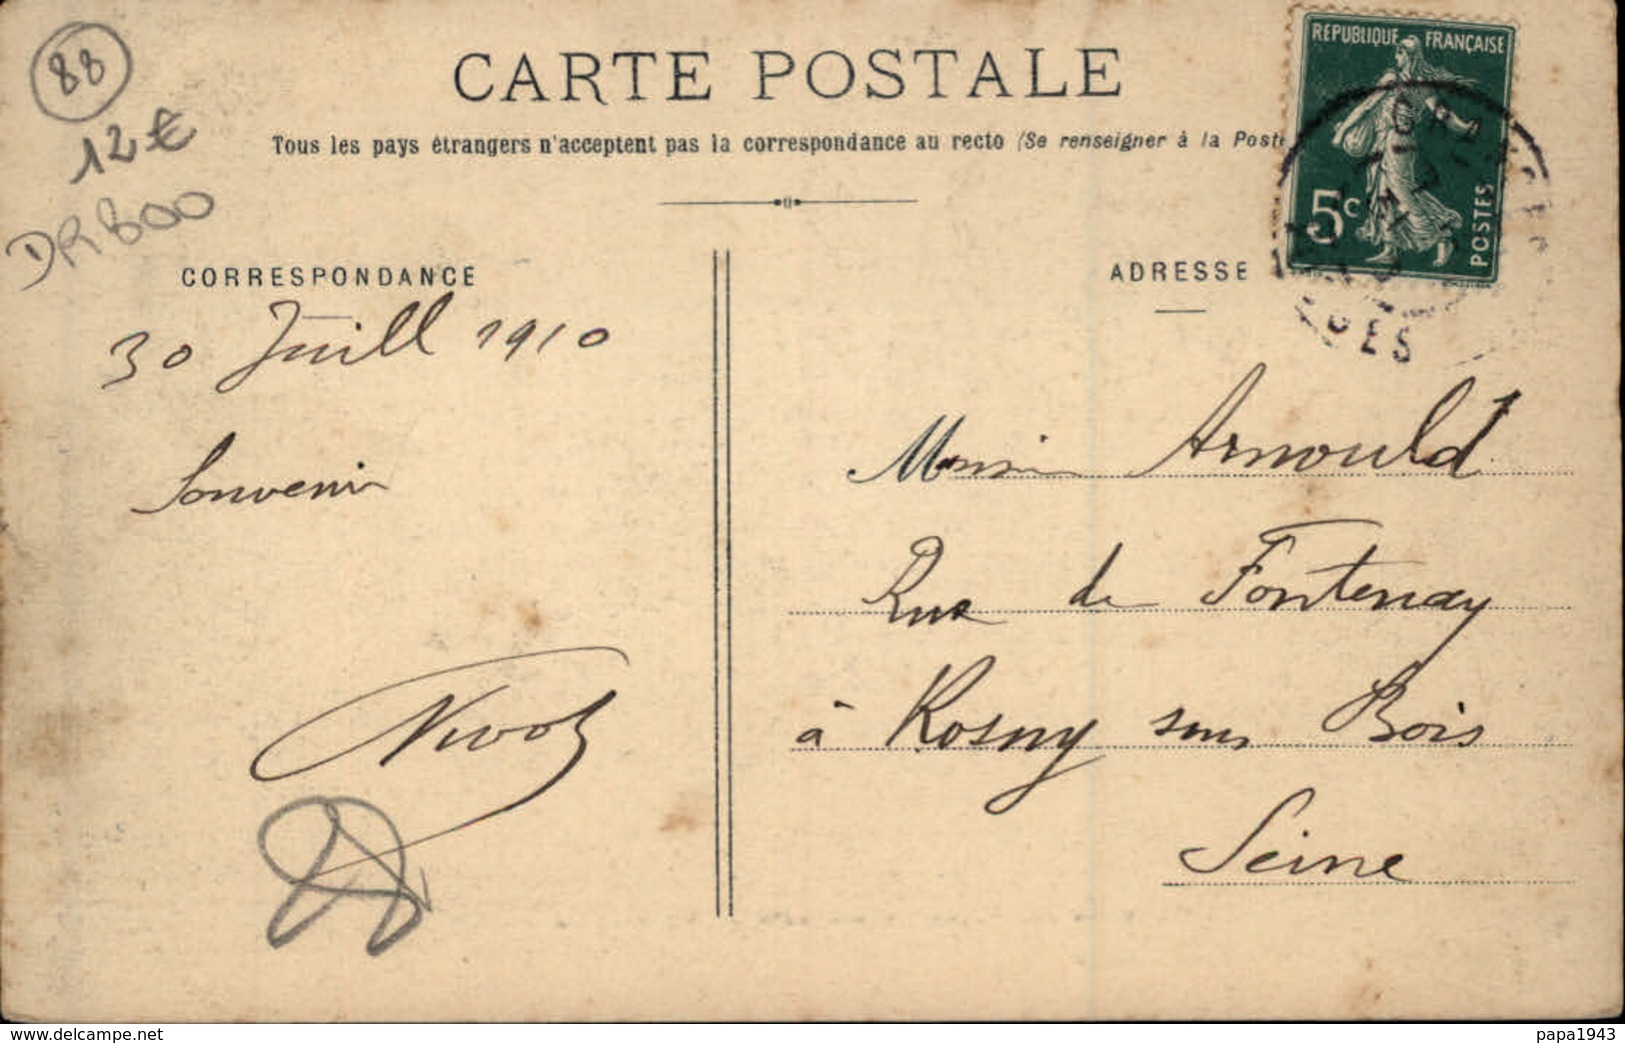 88
12€
DR800
CARTE POSTALE
Tous les pays étrangers n'acceptent pas la correspondance au recto (Se renseigner à la Poste
RÉPUBLIQUE FRANÇAISE
5c
POSTES
GES
CORRESPONDANCE
30 Juill 1910
Souvenir
ADRESSE
Monsieur Arnould
Rue de Fontenay
à Rosny sous Bois
Seine
delcampe.net
papa1943